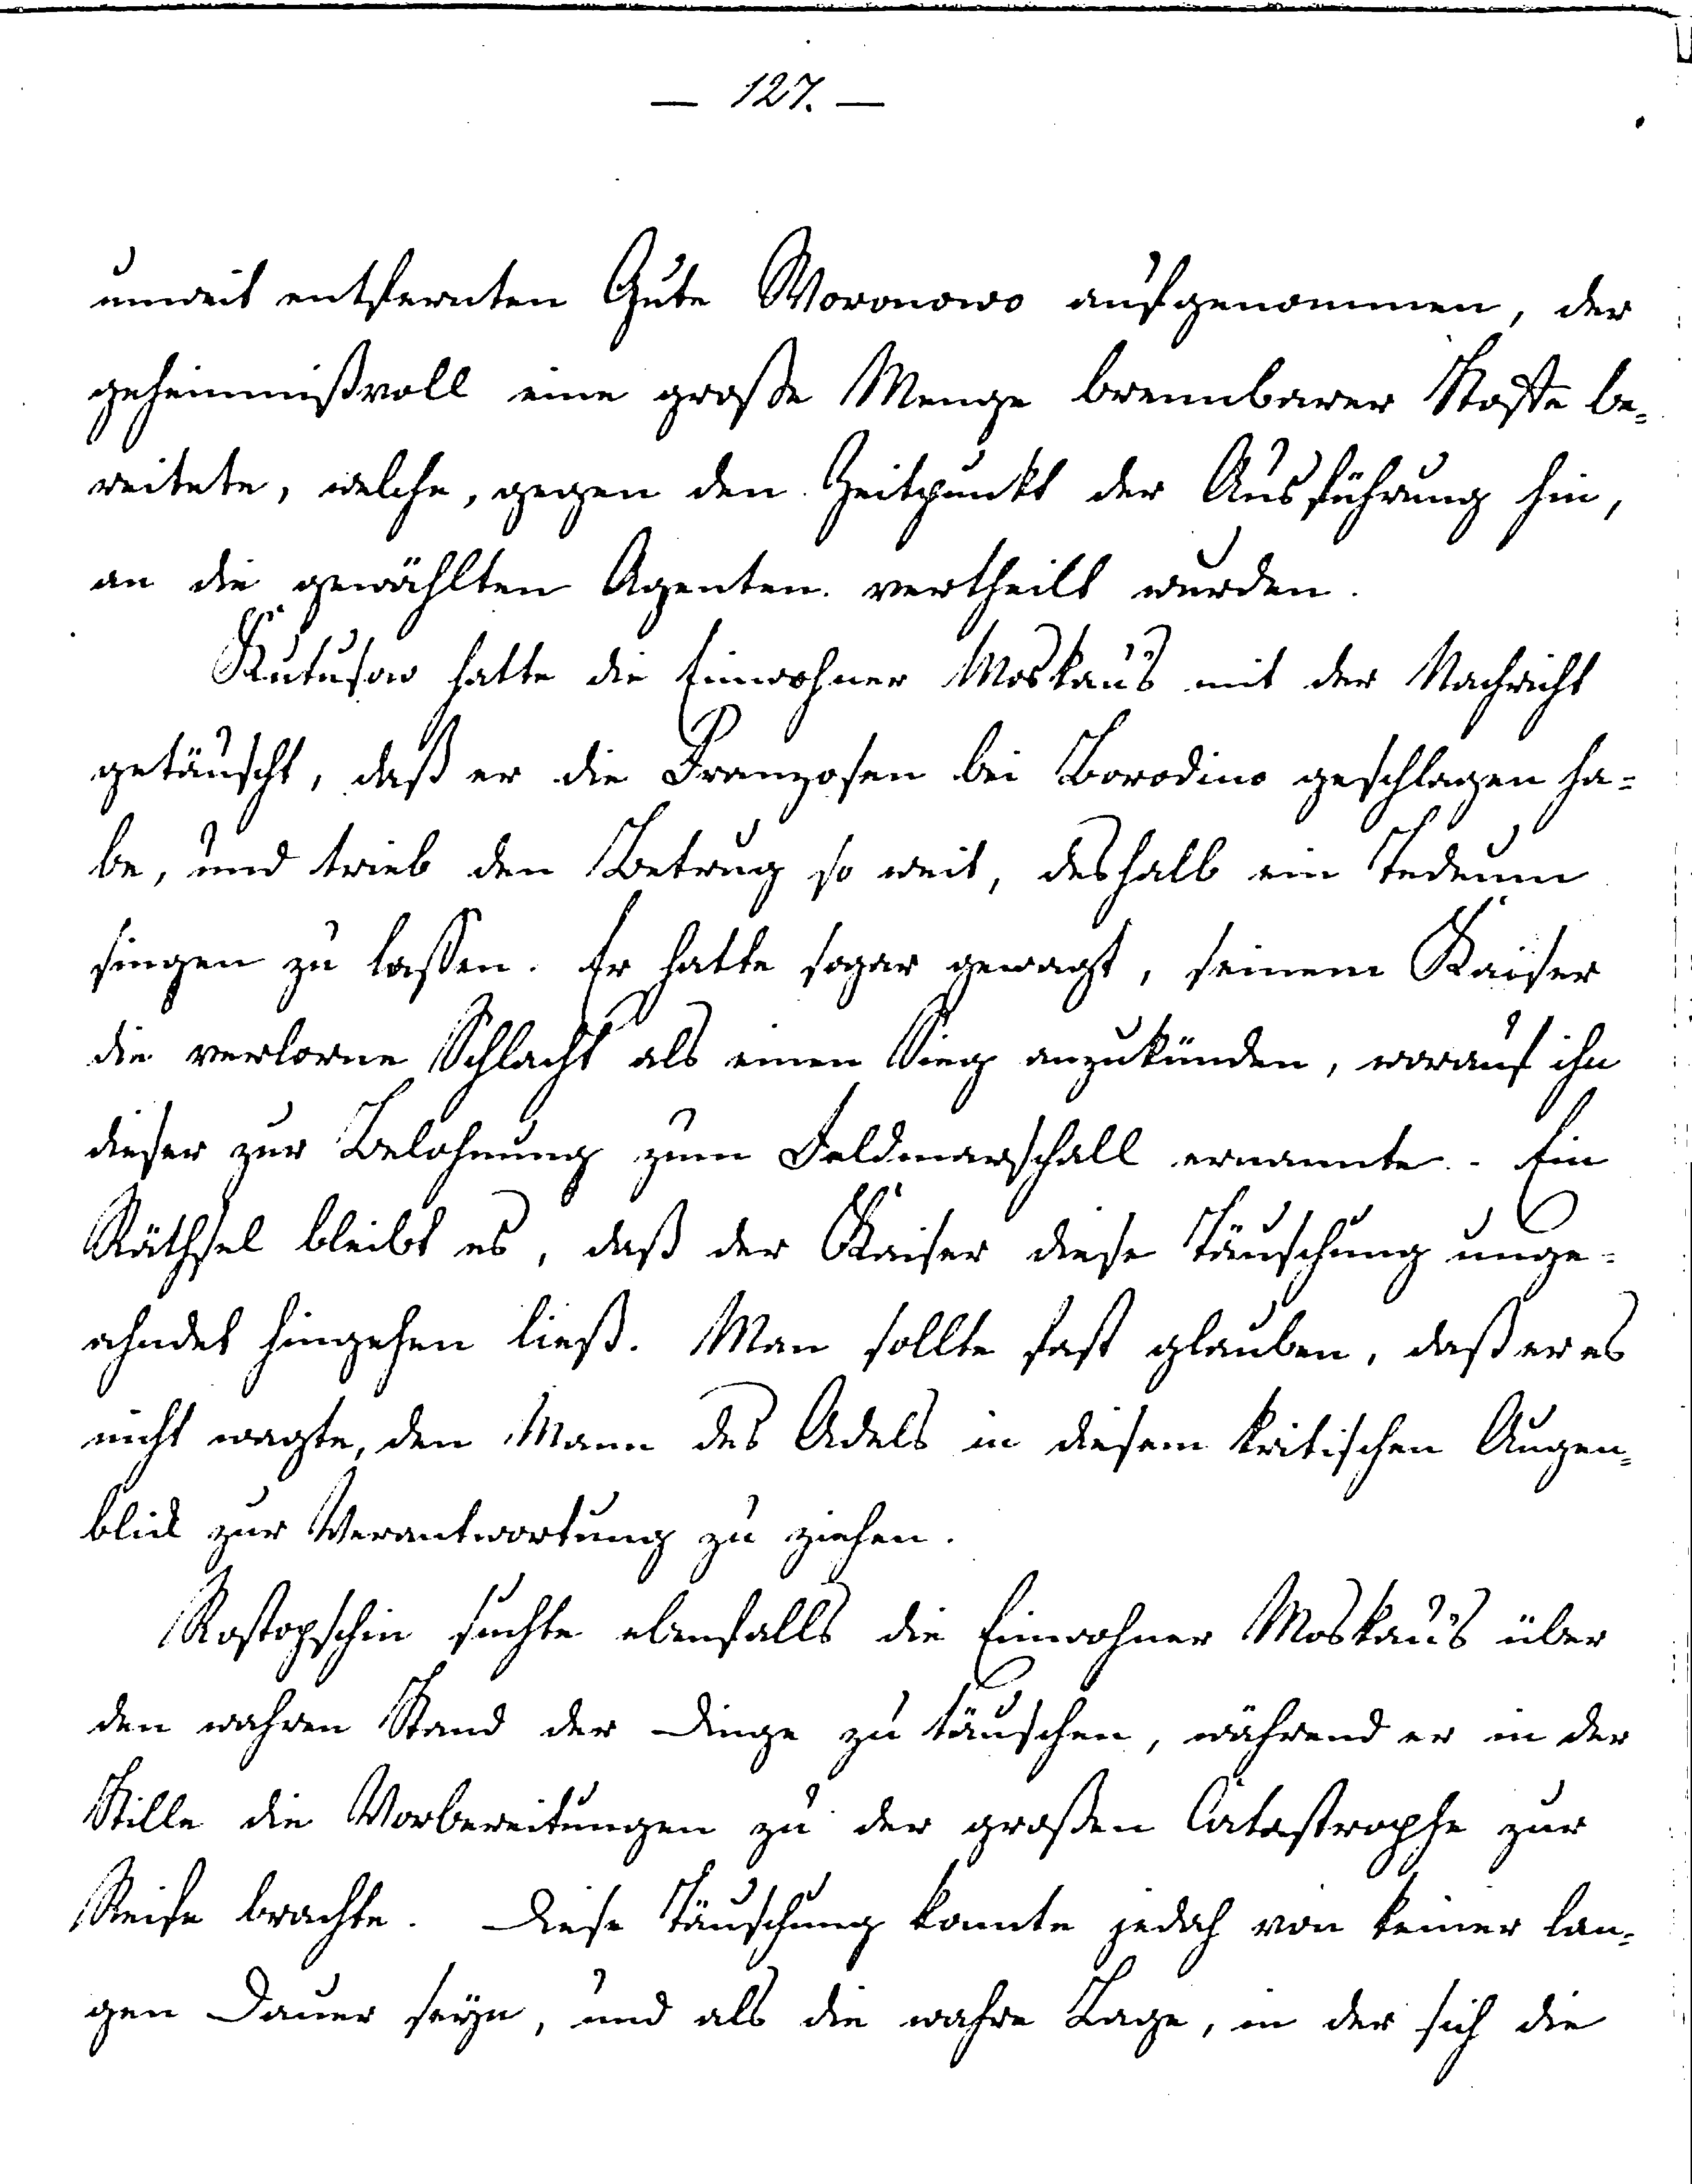 — 127. —
unweit entfernten Gute Woronowo aufgenommen, der
geheimnißvoll eine große Menge brennbarer Stoffe be=
reitete, welche, gegen den Zeitpunkt der Ausführung hin,
an die gewählten Agenten vertheilt wurden.
Kutusow hatte die Einwohner Moskau's mit der Nachricht
getäuscht, daß er die Franzosen bei Borodino geschlagen ha=
be, und trieb den Betrug so weit, deshalb ein Tedeum
singen zu lassen. Er hatte sogar gewagt, seinem Kaiser
die verlorne Schlacht als einen Sieg anzukünden, worauf ihn
dieser zur Belohnung zum Feldmarschall ernannte. - Ein
Räthsel bleibt es, daß der Kaiser diese Täuschung unge=
ahndet hingehen ließ. Man sollte fast glauben, daß er es
nicht wagte, den Mann des Adels in diesem kritischen Augen=
blick zur Verantwortung zu ziehen.
Rostopschin suchte ebenfalls die Einwohner Moskau's über
den wahren Stand der Dinge zu täuschen, während er in der
Stille die Vorbereitungen zu der großen Catastrophe zur
Reife brachte. Diese Täuschung konnte jedoch von keiner lan=
gen Dauer seyn, und als die wahre Lage, in der sich die